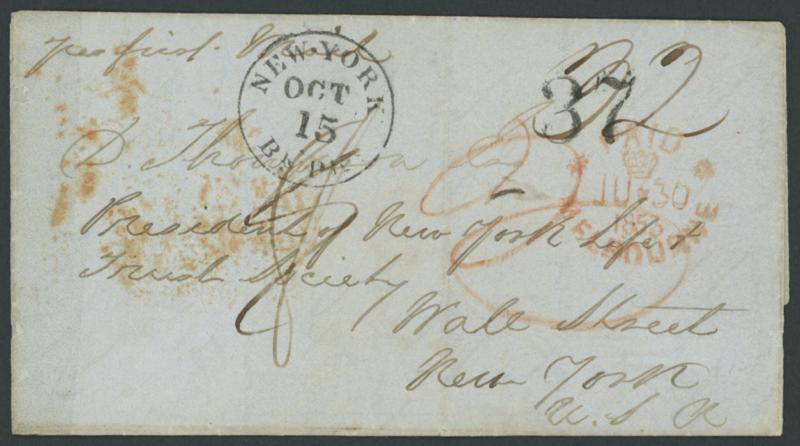 per first
NEW-YORK
OCT
15
Br. Pkt.
32
37
PAID
JU 30
1853
MELBOURNE
D. Thompson
President of New York Life &
Trust Society
Wall Street
New York
U. S. A